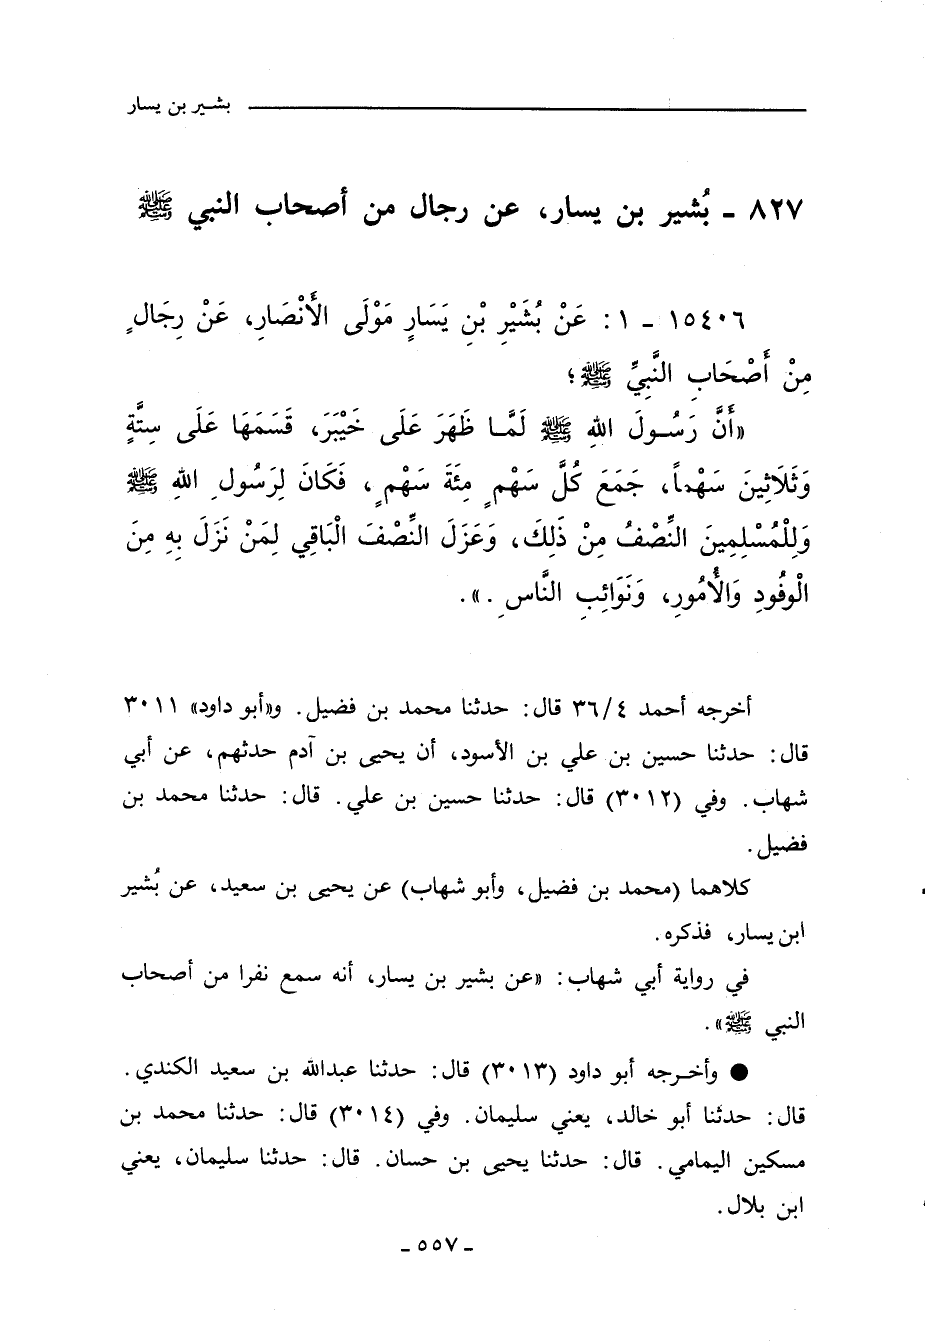 بشير بن يسار
٨٢٧ - بُشير بن يسار، عن رجال من أصحاب النبي ﷺ
١٥٤٠٦ - ١: عَنْ بُشَيْرِ بْنِ يَسَارٍ مَوْلَى الأَنْصَارِ، عَنْ رِجَالٍ
مِنْ أَصْحَابِ النَّبِيِّ ﷺ؛
«أَنَّ رَسُولَ اللهِ ﷺ لَمَّا ظَهَرَ عَلَى خَيْبَرَ، قَسَمَهَا عَلَى سِتَّةٍ
وَثَلَاثِينَ سَهْماً، جَمَعَ كُلَّ سَهْمٍ مِئَةَ سَهْمٍ، فَكَانَ لِرَسُولِ اللهِ ﷺ
وَلِلْمُسْلِمِينَ النِّصْفُ مِنْ ذَلِكَ، وَعَزَلَ النِّصْفَ الْبَاقِي لِمَنْ نَزَلَ بِهِ مِنَ
الْوُفُودِ وَالْأُمُورِ، وَنَوَائِبِ النَّاسِ.».
أخرجه أحمد ٣٦/٤ قال: حدثنا محمد بن فضيل. و«أبو داود» ٣٠١١
قال: حدثنا حسين بن علي بن الأسود، أن يحيى بن آدم حدثهم، عن أبي
شهاب. وفي (٣٠١٢) قال: حدثنا حسين بن علي. قال: حدثنا محمد بن
فضيل.
كلاهما (محمد بن فضيل، وأبو شهاب) عن يحيى بن سعيد، عن بُشير
ابن يسار، فذكره.
في رواية أبي شهاب: «عن بشير بن يسار، أنه سمع نفرا من أصحاب
النبي ﷺ».
● وأخرجه أبو داود (٣٠١٣) قال: حدثنا عبدالله بن سعيد الكندي.
قال: حدثنا أبو خالد، يعني سليمان. وفي (٣٠١٤) قال: حدثنا محمد بن
مسكين اليمامي. قال: حدثنا يحيى بن حسان. قال: حدثنا سليمان، يعني
ابن بلال.
- ٥٥٧ -